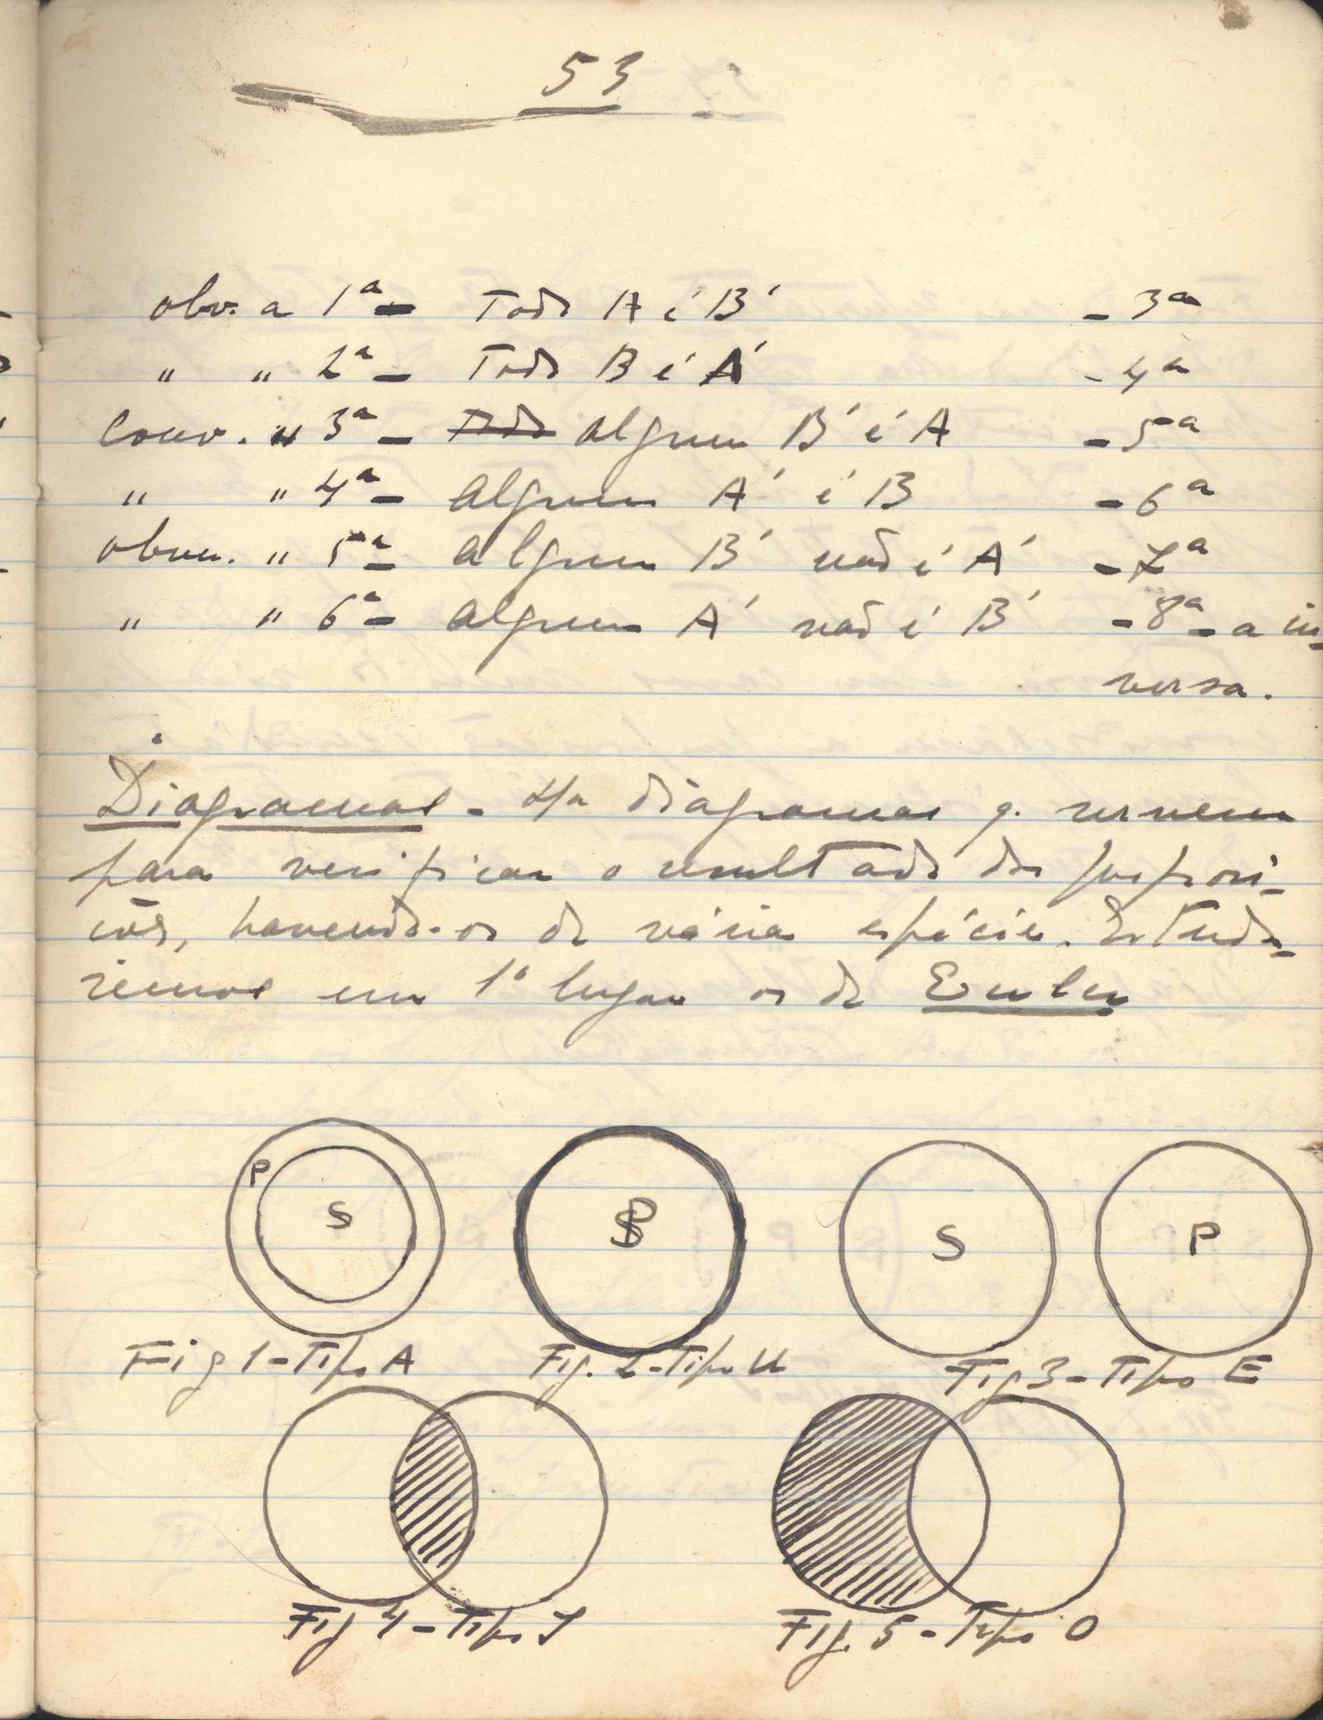 53
obv. a 1ª - Todo A é B' - 3ª
" " 2ª - Todo B é A' - 4ª
Conv. " 3ª - Todo algum B' é A - 5ª
" " 4ª - algum A' é B - 6ª
obver. " 5ª - algum B' não é A' - 7ª
" " 6ª - algum A' não é B' - 8ª - a in-
versa.
Diagramas - Ha diagramas q. servem
para verificar o resultado das proposi-
ções, havendo-os de várias espécies. Estuda-
remos em 1º lugar os de Euler
P S
S P
S P
Fig 1 - Tipo A Fig. 2 - Tipo U Fig 3 - Tipo E
Fig 4 - Tipo I Fig. 5 - Tipo O